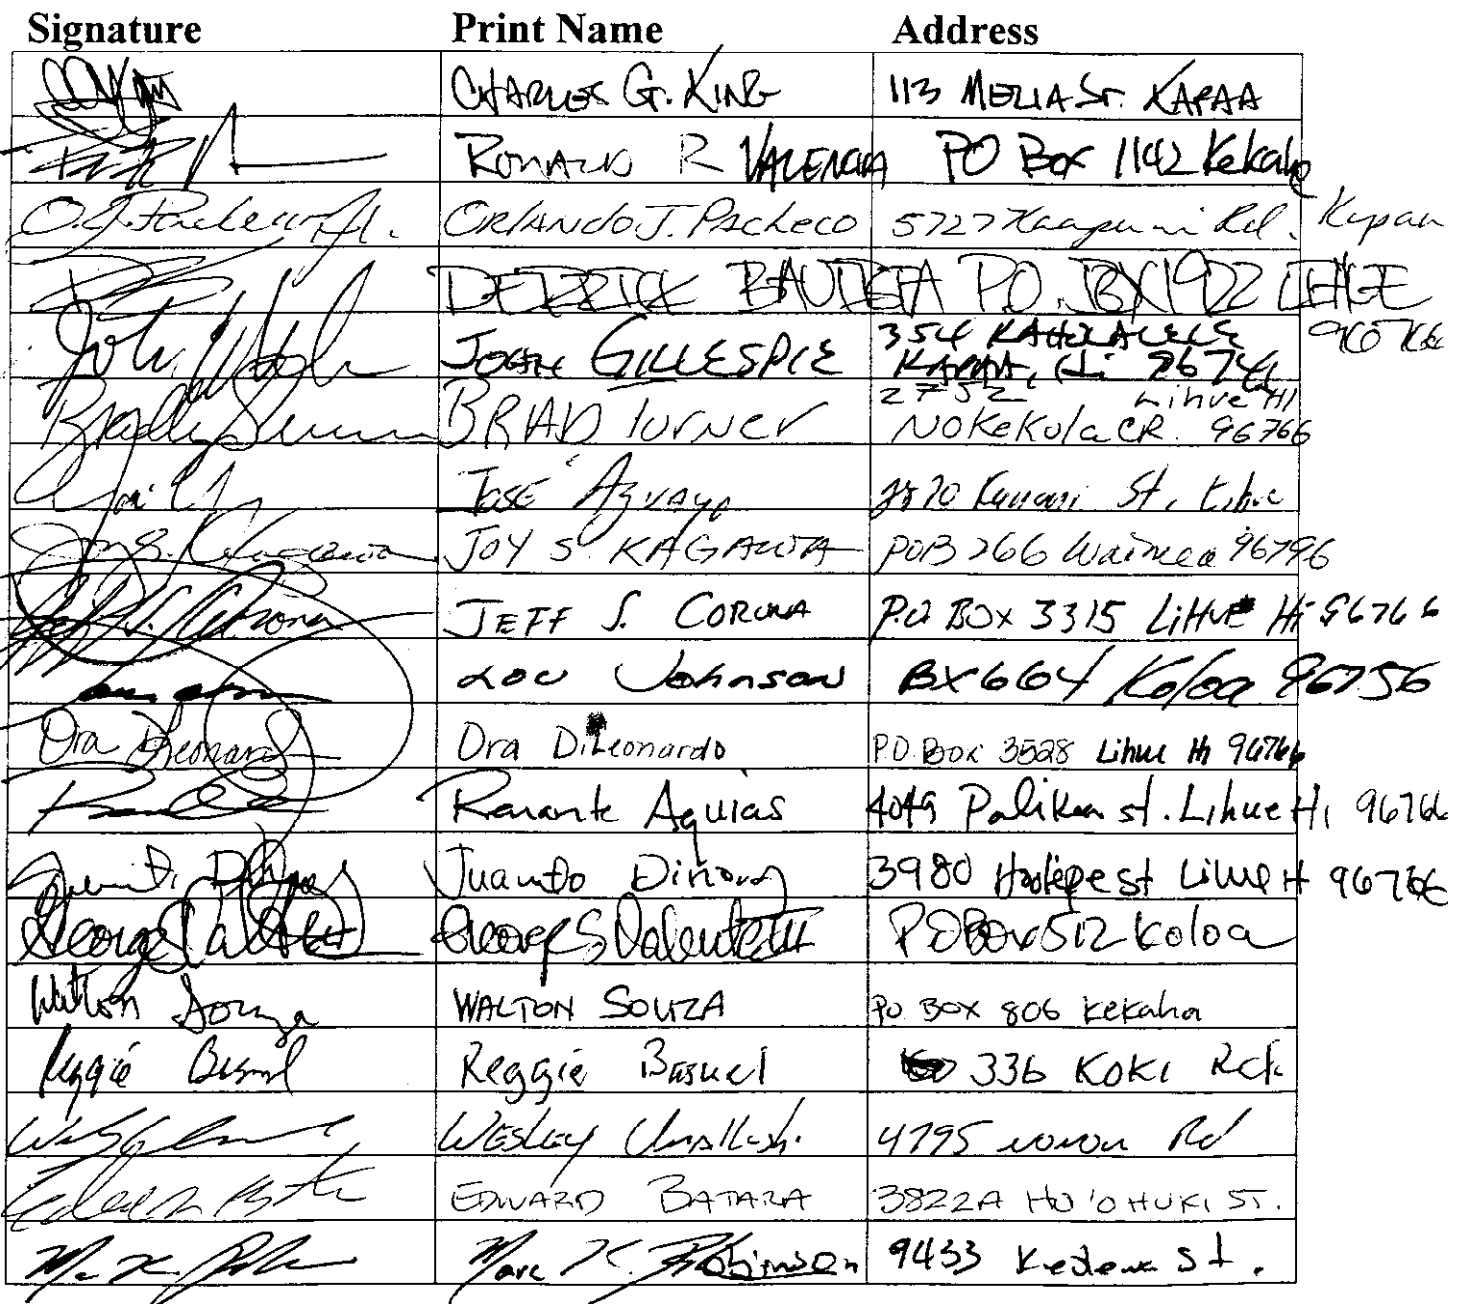 Signature Print Name Address
CHARLES G. KING 113 MELIA St. KAPAA
RONALD R VALENCIA PO Box 1142 Kekaha
O.J. Pacheco Jr. ORLANDO J. Pacheco 5727 Rd. Kapaa
DERRICK BAUTISTA P.O. BX 1922 LIHUE
96766
John GILLESPIE 354
KAPAA, Hi 96746
2752 Lihue HI
BRAD Turner NOKEKULA CR. 96766
JOSÉ St, Lihue
Joy S. Kagawa JOY S KAGAWA POB 266 Waimea 96796
JEFF S. CORONA P.O BOX 3315 LiHUE Hi 96766
LOU Johnson BX 664 Koloa 96756
Ora DiLeonardo Ora DiLeonardo P.O. Box 3528 Lihue Hi 96766
Renante Aguias 4049 Palikea st. Lihue Hi 96766
Juanito 3980 Hoolepe st Lihue H 96766
George S. Valente III PO Box 512 Koloa
Walton Souza WALTON SOUZA PO BOX 806 Kekaha
Reggie Reggie Basuel 336 KOKI Rd.
WESLEY 4795 Rd
EDWARD BATARA 3822A HO'OHUKI ST.
Marc K. Robinson 9433 St.